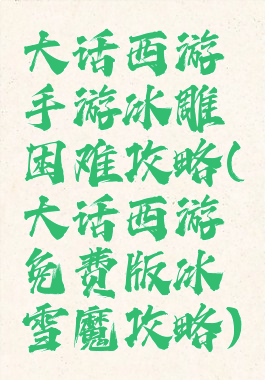 大话西游
手游冰雕
困难攻略(
大话西游
免费版冰
雪魔攻略)